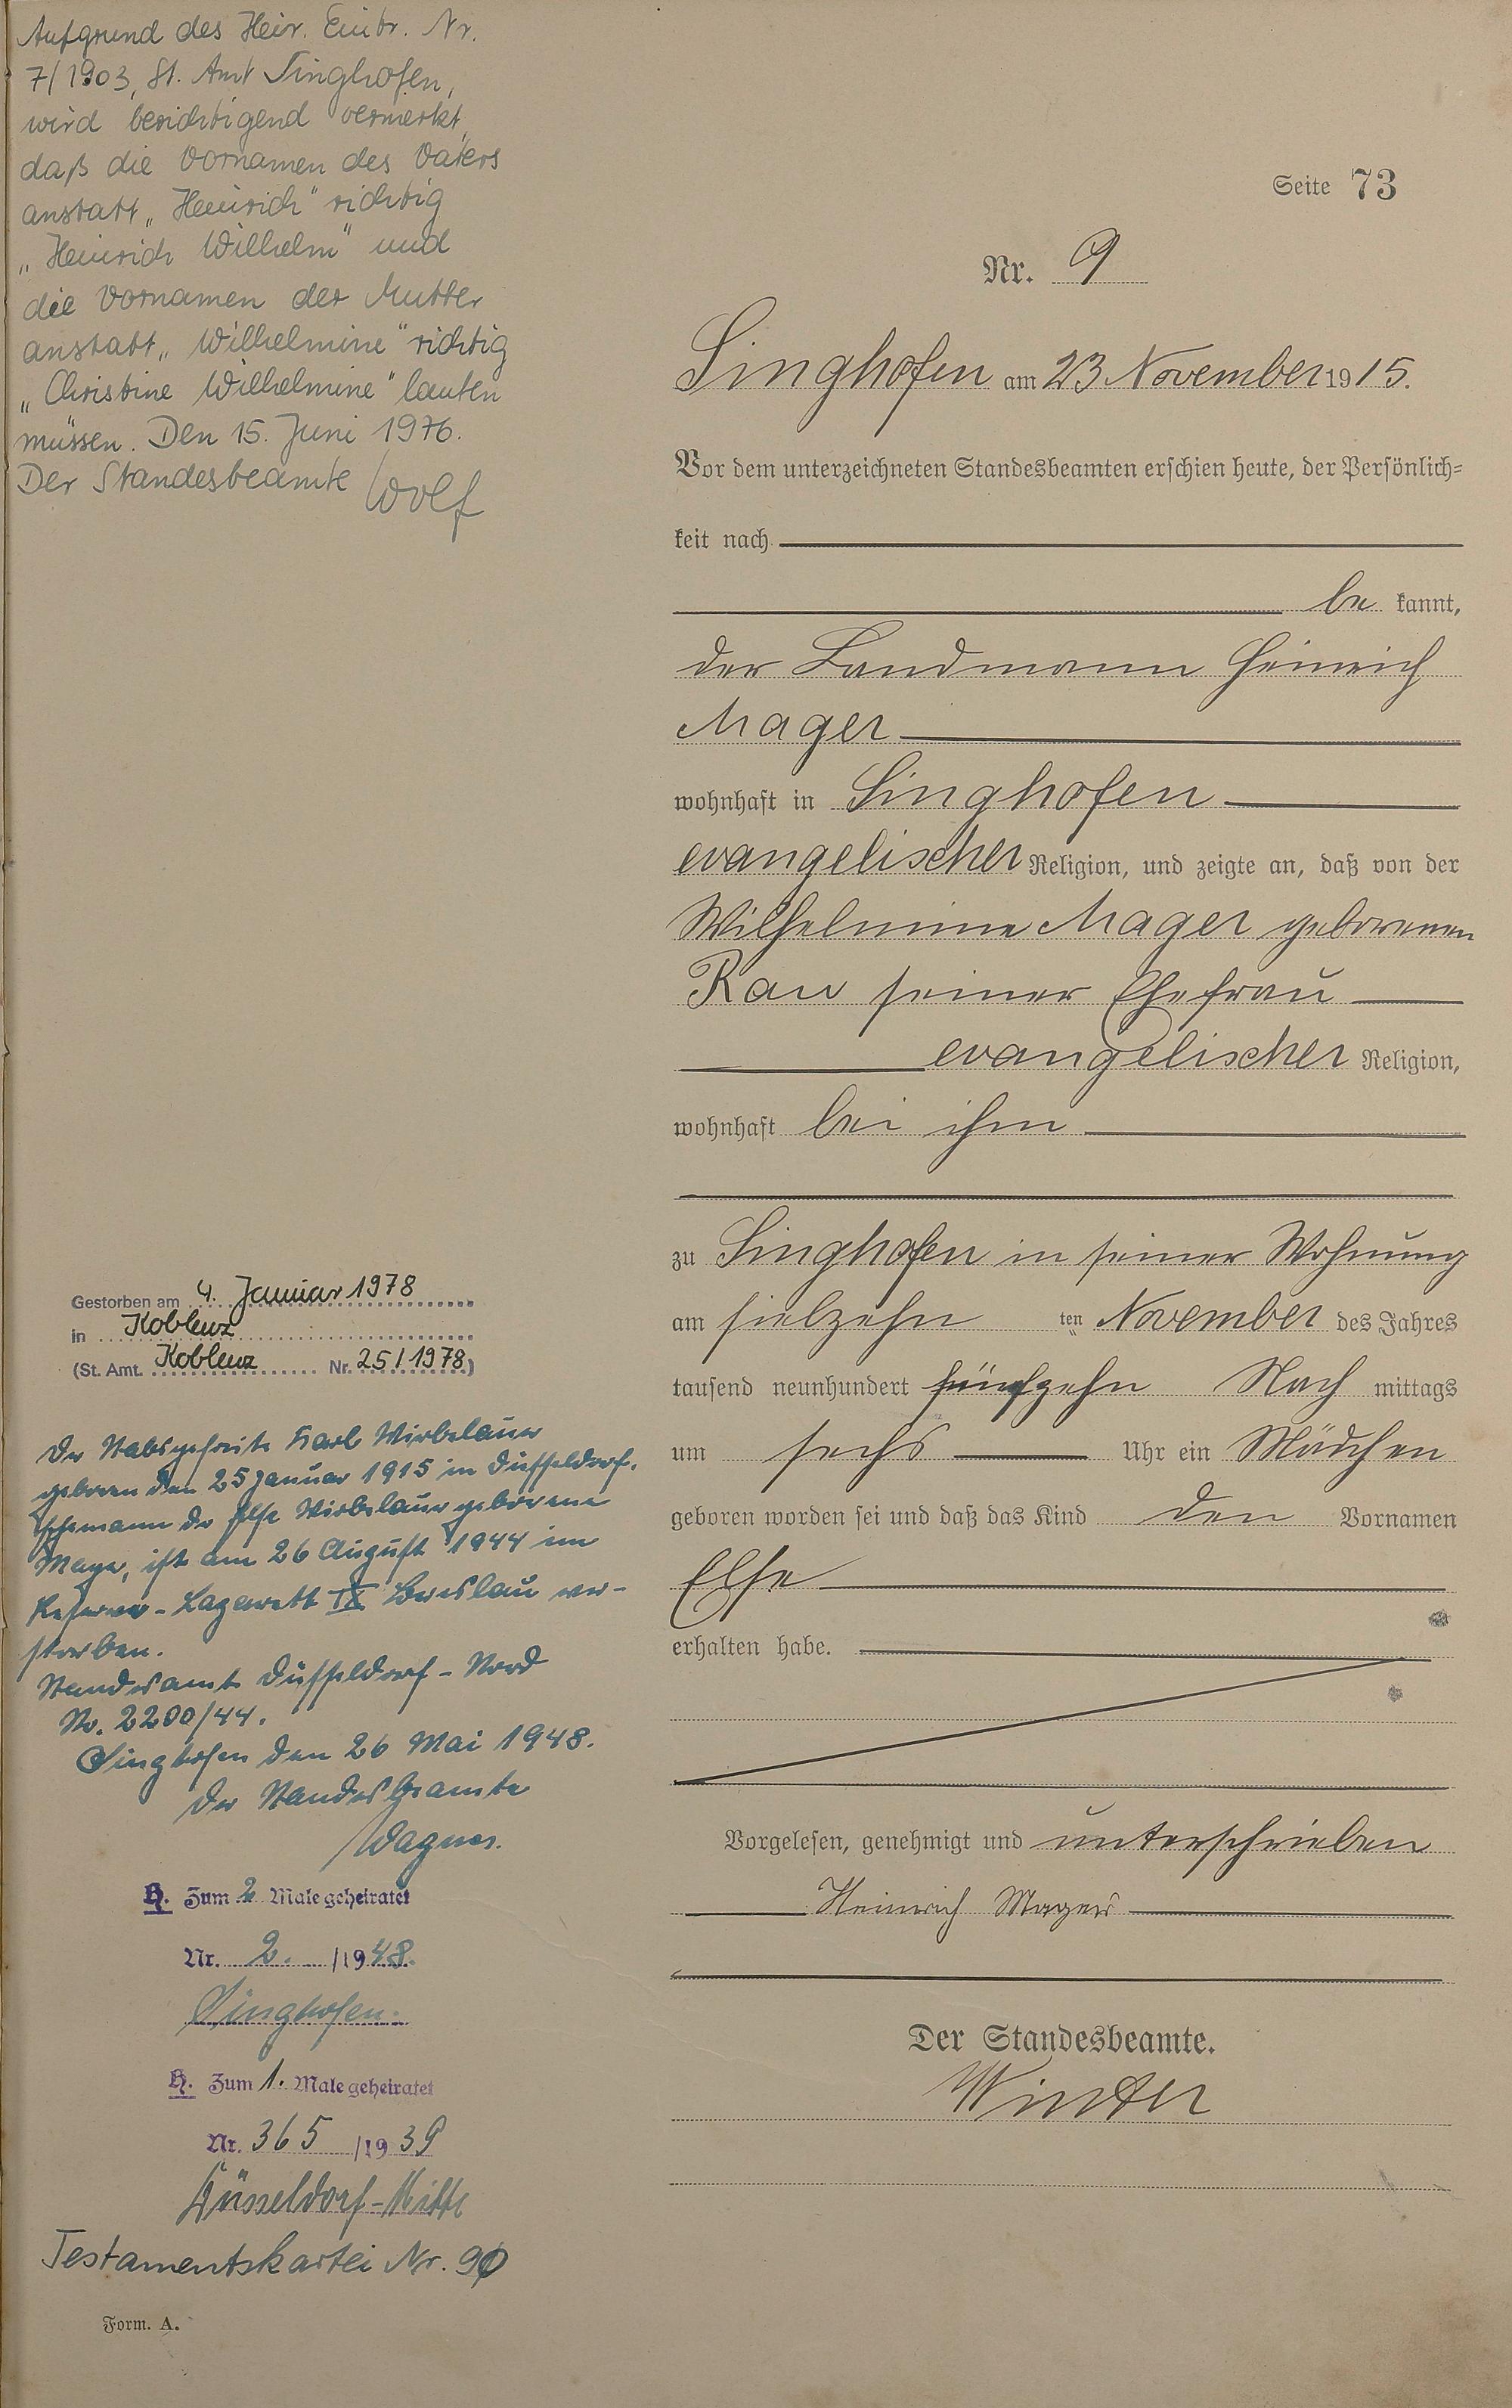 Aufgrund des Heir. Eintr. Nr.
7/1903, St. Amt Singhofen,
wird berichtigend vermerkt,
daß die Vornamen des Vaters
anstatt „Heinrich" richtig
„Heinrich Wilhelm" und
die Vornamen der Mutter
anstatt „Wilhelmine" richtig
„Christine Wilhelmine" lauten
müssen. Den 15. Juni 1976.
Der Standesbeamte Wolf
Gestorben am 4. Januar 1978
in Koblenz
(St. Amt. Koblenz Nr. 25/1978)
Der Stabsgefreite Karl Wirbelauer
geboren den 25 Januar 1915 in Düsseldorf.
Ehemann der Else Wirbelauer geborene
Mager, ist am 26 August 1944 im
Reserve-Lazarett IX Breslau ver-
storben.
Standesamt Düsseldorf-Nord
Nr. 2200/44.
Singhofen den 26 Mai 1948.
Der Standesbeamte
Wagner.
H. Zum 2 Male geheiratet
Nr. 2. /1948.
Singhofen.
H. Zum 1. Male geheiratet
Nr. 365 /1939
Düsseldorf-Mitte
Testamentskartei Nr. 90
Form. A.
Seite 73
Nr. 9
Singhofen am 23 November 1915.
Vor dem unterzeichneten Standesbeamten erschien heute, der Persönlich-
keit nach
be kannt,
der Landmann Heinrich
Mager
wohnhaft in Singhofen
evangelischer Religion, und zeigte an, daß von der
Wilhelmine Mager geborenen
Rau seiner Ehefrau
evangelischer Religion,
wohnhaft bei ihm
zu Singhofen in seiner Wohnung
am siebzehn ten November des Jahres
tausend neunhundert fünfzehn Nach mittags
um sechs Uhr ein Mädchen
geboren worden sei und daß das Kind den Vornamen
Else
erhalten habe.
Vorgelesen, genehmigt und unterschrieben
Heinrich Mager
Der Standesbeamte.
Winter